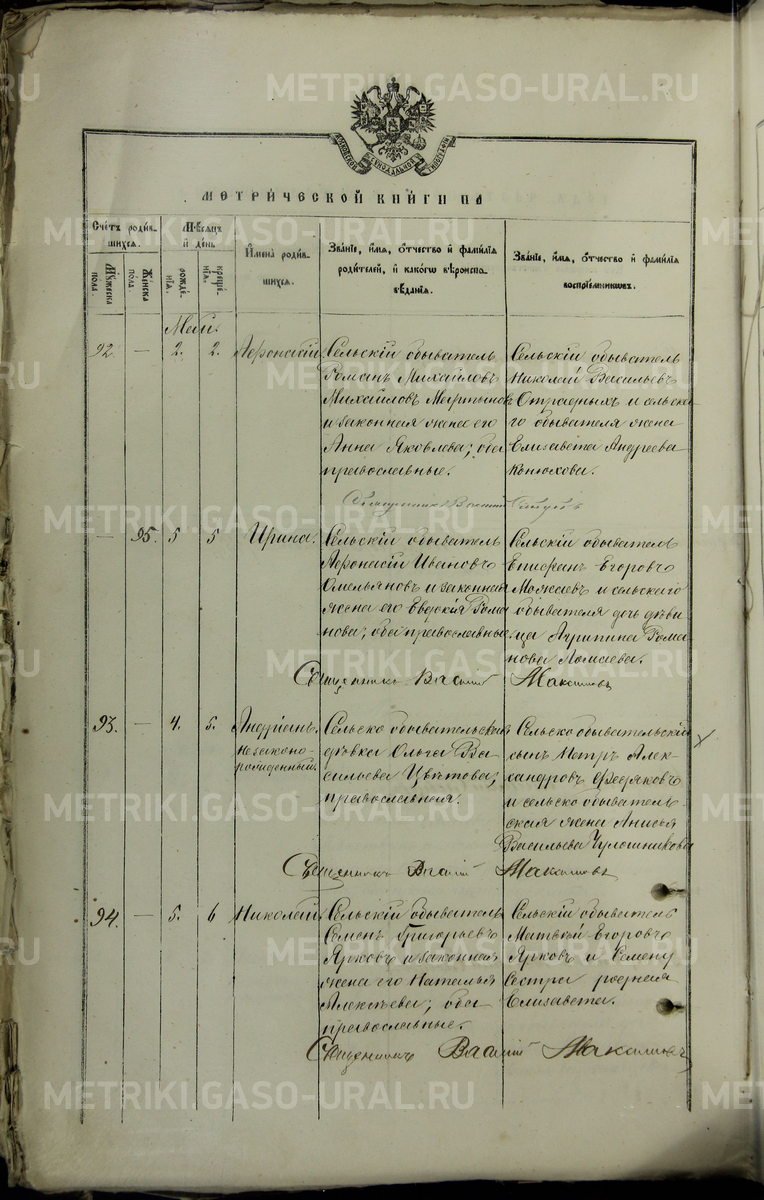 METRIKI.GASO-URAL.RU
МЕТРИЧЕСКОЙ КНИГИ НА
Счетъ родив-
шихся.
Мѣсяцъ
и день
Мужеска
пола.
Женска
пола.
рожде-
нія.
креще-
нія.
Имена родив-
шихся.
Званіе, имя, отчество и фамилія
родителей, и какого вѣроиспо-
вѣданія.
Званіе, имя, отчество и фамилія
воспріемниковъ.
Май.
92. — 2. 2. Афонасій.
Сельскій обыватель
Романъ Михайловъ
Михайловъ Мартыновъ
и законная жена его
Анна Яковлева; оба
православные.
Сельскій обыватель
Николай Васильевъ
Отрадныхъ и сельска-
го обывателя жена
Елизавета Андреева
Конюхова.
Священникъ Василій
— 95. 5 5 Ирина.
Сельскій обыватель
Афонасій Ивановъ
Омельяновъ и законная
жена его Евдокія Рома
нова; оба православные.
Сельскій обыватель
Епифанъ Егоровъ
Можаевъ и сельскаго
обывателя дочь дѣви-
ца Агрипина Рома
нова Ломаева.
Священникъ Василій Макаимовъ
93. — 4. 5. Андріанъ
незаконо-
рожденный.
Сельско обывательская
дѣвка Ольга Ва-
сильева Цвѣтова;
православная.
Сельско обывательскій
сынъ Петръ Алек-
сандровъ
и сельско обыватель-
ская жена Анисья
Васильева Чулошникова
Священникъ Василій Макаимовъ
94. — 5. 6 Николай.
Сельскій обыватель
Семенъ Григорьевъ
Ярковъ и законная
жена его Наталья
Алексѣева; оба
православные.
Сельскій обыватель
Матвѣй Егоровъ
Ярковъ и Семену
сестра родная
Елизавета.
Священникъ Василій Макаимовъ